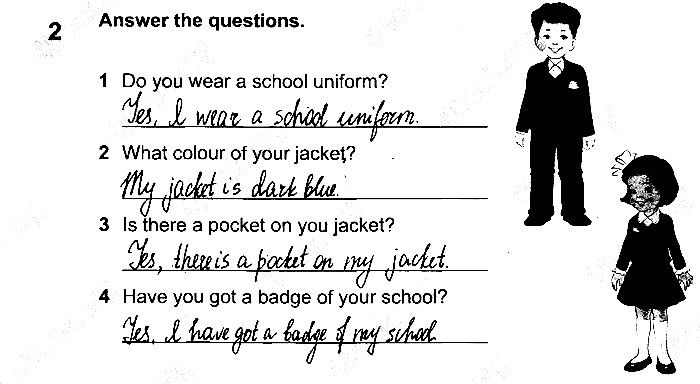 2 Answer the questions.
1 Do you wear a school uniform?
Yes, I wear a school uniform.
2 What colour of your jacket?
My jacket is dark blue.
3 Is there a pocket on you jacket?
Yes, there is a pocket on my jacket.
4 Have you got a badge of your school?
Yes, I have got a badge of my school.